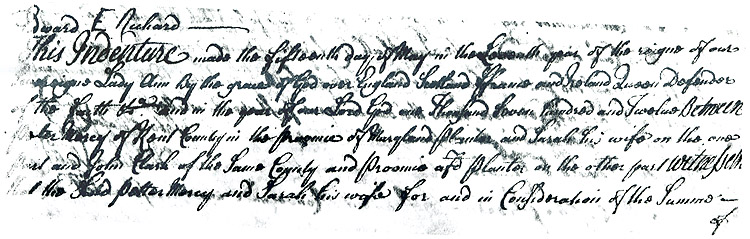 dward E Richard
This Indenture made the fifteenth day of May in the Eleventh year of the reigne of our
Lady Ann By the grace of God over England Scotland ffrance and Ireland Queen Defender
of the faith &c and in the year of our Lord God one Thousand Seven hundred and Twelve Between
Mercy of Kent County in the Provinie of Maryland Planter and Sarah his wife on the one
part and John Clark of the Same County and Provinie afd Planter on the other part Witnesseth
that the said Petter Mercy and Sarah his wife for and in Consideration of the Summe
of